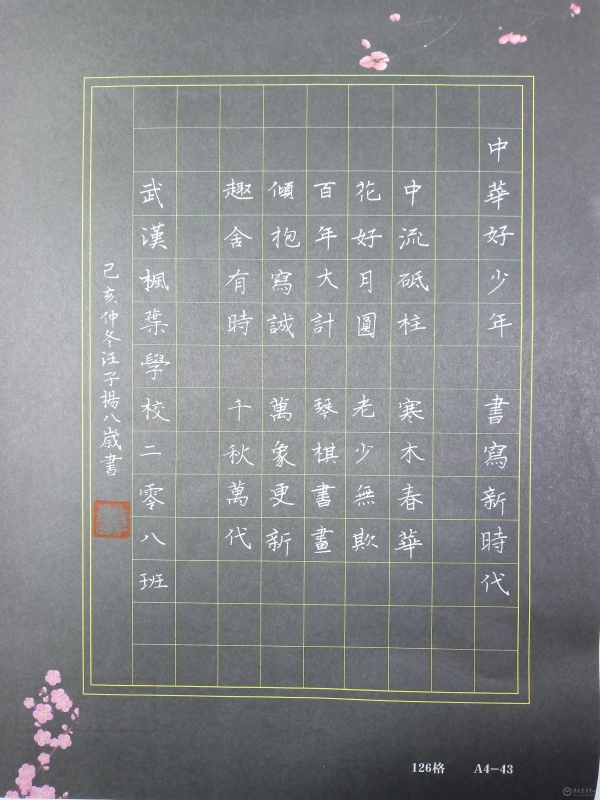 中華好少年 書寫新時代
中流砥柱 寒木春華
花好月圓 老少無欺
百年大計 琴棋書畫
傾抱寫誠 萬象更新
趣舍有時 千秋萬代
武漢楓葉學校二零八班
己亥仲冬汪子揚八歲書
126格 A4-43